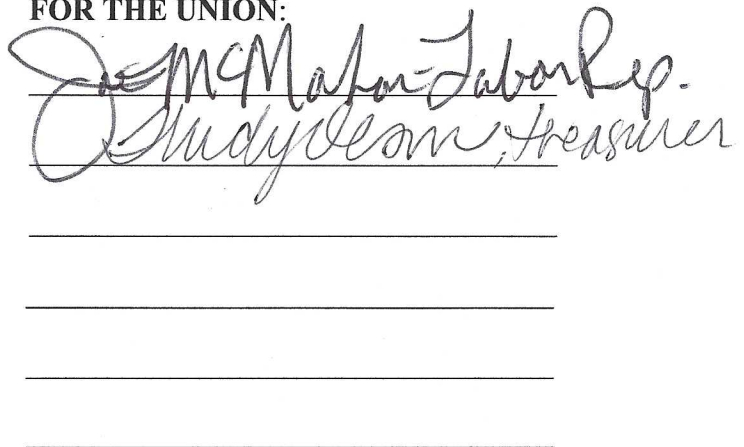 FOR THE UNION:
Joe McMahon-Labor Rep.
, treasurer